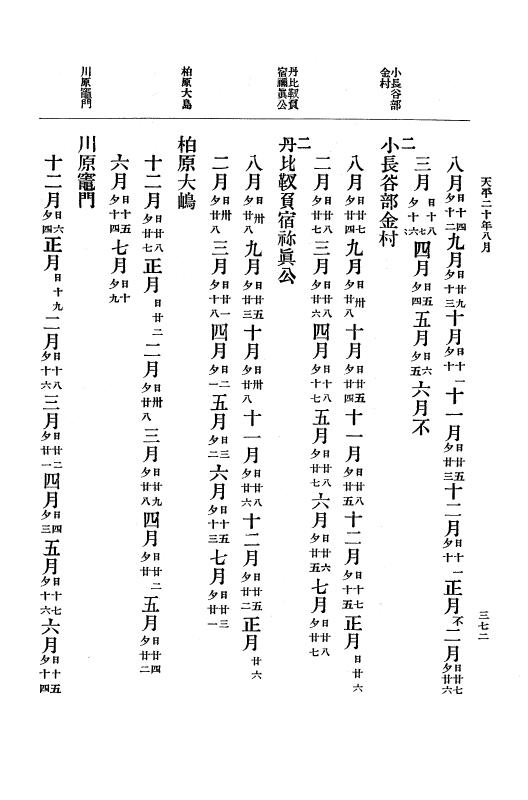 天平二十年八月
三七二
小長谷部
金村
丹比靫負
宿禰眞公
柏原大島
川原竈門
八月日十四夕十二九月日廿九夕十三十月日十一夕十十一月日廿五夕廿三十二月日十一夕十正月不二月日廿七夕廿六
三月日十八夕十六四月日五夕四五月日六夕五六月不
二小長谷部金村
八月日廿七夕廿四九月日卅夕廿八十月日廿五夕廿四十一月日廿八夕廿五十二月日十七夕十五正月日廿六
二月日廿八夕廿七三月日廿八夕廿六四月日十八夕十七五月日廿八夕廿七六月日廿六夕廿五七月日廿八夕廿七
二丹比靫負宿祢眞公
八月日卅夕廿八九月日廿五夕廿三十月日卅夕廿八十一月日廿八夕廿六十二月日廿五夕廿二正月廿六
二月日卅夕廿八三月日廿一夕十八四月日二夕一五月日三夕二六月日十五夕十三七月日廿三夕廿一
柏原大嶋
十二月日廿八夕廿七正月日廿二二月日卅夕廿八三月日廿九夕廿八四月日廿二夕廿五月日廿四夕廿二
六月日十五夕十四七月日十夕九
川原竈門
十二月日六夕四正月日十九二月日十八夕十六三月日廿二夕廿一四月日四夕三五月日十七夕十六六月日十五夕十四